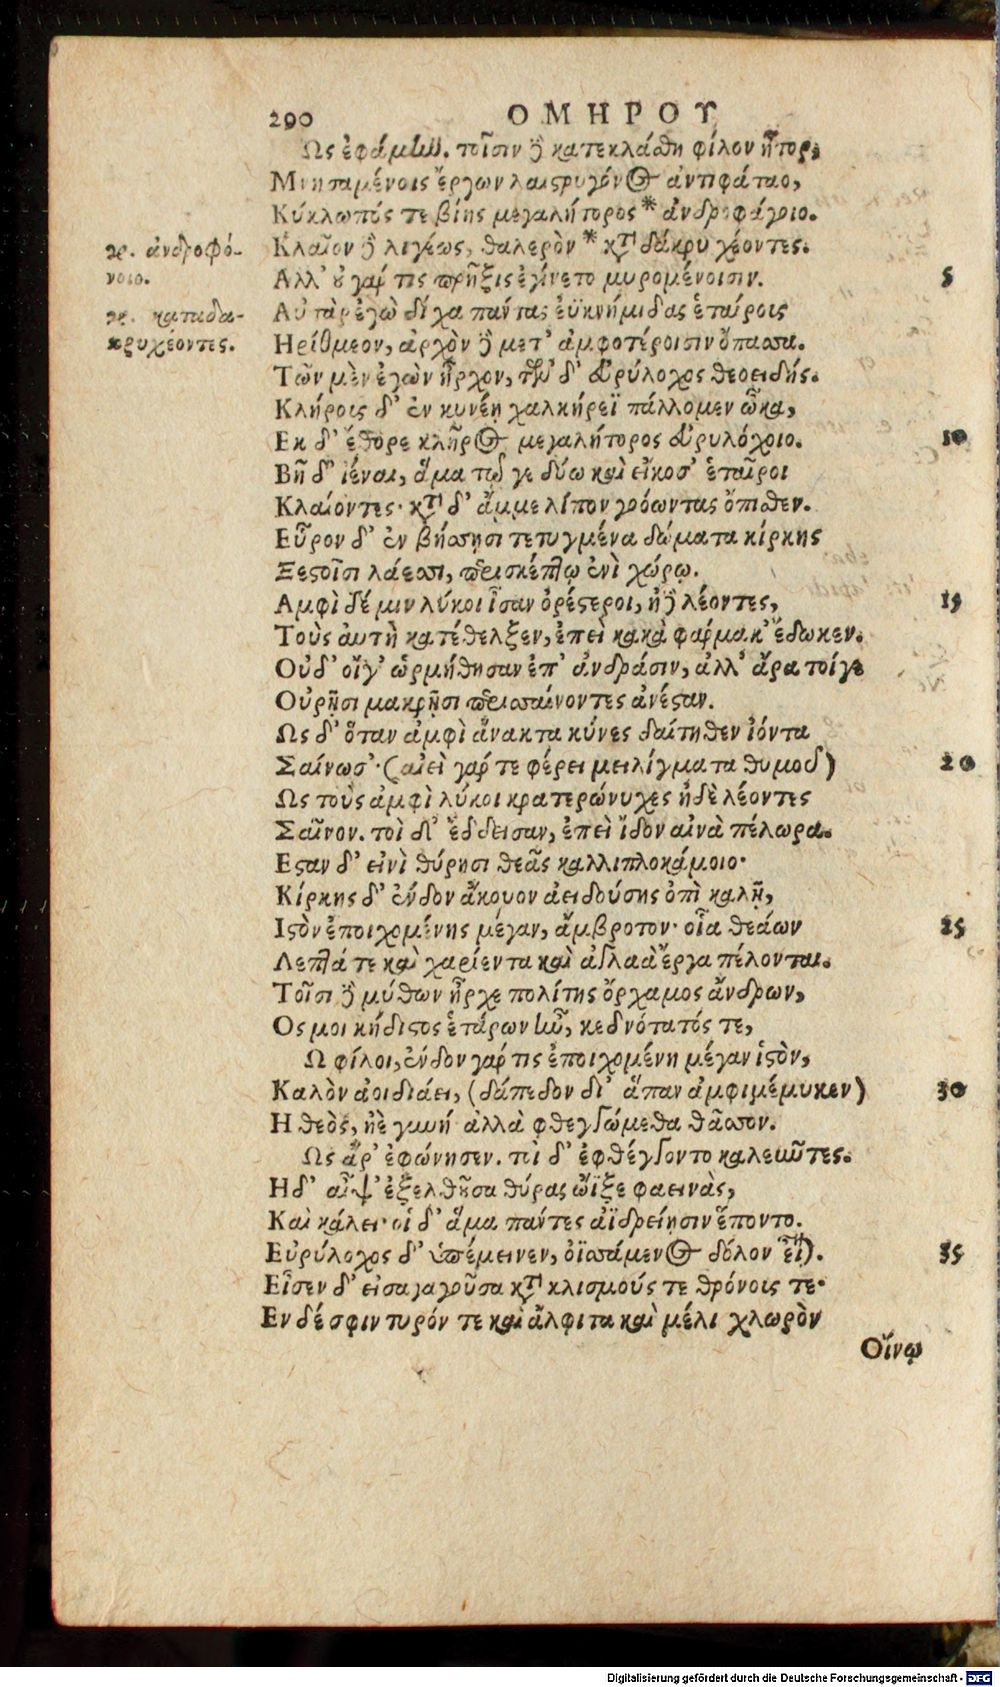 290 ΟΜΗΡΟΥ
Ως ἐφάμην. τοῖσιν δὲ κατεκλάσθη φίλον ἦτορ,
Μνησαμένοις ἔργων λαιστρυγόνος ἀντιφάταο,
Κύκλωπός τε βίης μεγαλήτορος * ἀνδροφάγοιο.
γρ. ἀνδροφό-
νοιο.
Κλαῖον δὲ λιγέως, θαλερὸν * κατὰ δάκρυ χέοντες.
Αλλ' οὐ γάρ τις πρῆξις ἐγίνετο μυρομένοισιν. 5
γρ. καταδα-
κρυχέοντες.
Αὐτὰρ ἐγὼ δίχα πάντας ἐϋκνήμιδας ἑταίροις
Ηρίθμεον, ἀρχὸν δὲ μετ' ἀμφοτέροισιν ὄπασσα.
Τῶν μὲν ἐγὼν ἦρχον, τῶν δ' εὐρύλοχος θεοειδής.
Κλήροις δ' ἐν κυνέῃ χαλκήρεϊ πάλλομεν ὦκα,
Εκ δ' ἔθορε κλῆρος μεγαλήτορος εὐρυλόχοιο. 10
Βῆ δ' ἰέναι, ἅμα τῷ γε δύω καὶ εἴκοσ' ἑταῖροι
Κλαίοντες· κατὰ δ' ἄμμε λίπον γοόωντας ὄπισθεν.
Εὗρον δ' ἐν βήσσῃσι τετυγμένα δώματα κίρκης
Ξεστοῖσι λάεσσι, περισκέπτῳ ἐνὶ χώρῳ.
Αμφὶ δέ μιν λύκοι ἦσαν ὀρέστεροι, ἠδὲ λέοντες, 15
Τοὺς αὐτὴ κατέθελξεν, ἐπεὶ κακὰ φάρμακ' ἔδωκεν.
Οὐδ' οἵγ' ὡρμήθησαν ἐπ' ἀνδράσιν, ἀλλ' ἄρα τοίγε
Οὐρῇσι μακρῇσι περισσαίνοντες ἀνέσταν.
Ως δ' ὅταν ἀμφὶ ἄνακτα κύνες δαίτηθεν ἰόντα
Σαίνωσ'· (αἰεὶ γάρ τε φέρει μειλίγματα θυμοῦ) 20
Ως τοὺς ἀμφὶ λύκοι κρατερώνυχες ἠδὲ λέοντες
Σαῖνον. τοὶ δ' ἔδδεισαν, ἐπεὶ ἴδον αἰνὰ πέλωρα.
Εσταν δ' εἰνὶ θύρῃσι θεᾶς καλλιπλοκάμοιο·
Κίρκης δ' ἔνδον ἄκουον ἀειδούσης ὀπὶ καλῇ,
Ιστὸν ἐποιχομένης μέγαν, ἄμβροτον· οἷα θεάων 25
Λεπτά τε καὶ χαρίεντα καὶ ἀγλαὰ ἔργα πέλονται.
Τοῖσι δὲ μύθων ἦρχε πολίτης ὄρχαμος ἄνδρων,
Ος μοι κήδιστος ἑτάρων ἦν, κεδνότατός τε,
Ω φίλοι, ἔνδον γάρ τις ἐποιχομένη μέγαν ἱστὸν,
Καλὸν ἀοιδιάει, (δάπεδον δ' ἅπαν ἀμφιμέμυκεν) 30
Η θεὸς, ἠὲ γυνή ἀλλὰ φθεγγώμεθα θᾶσσον.
Ως ἄρ' ἐφώνησεν. τοὶ δ' ἐφθέγγοντο καλεῦντες.
Η δ' αἶψ' ἐξελθοῦσα θύρας ὤϊξε φαεινὰς,
Καὶ κάλει· οἱ δ' ἅμα πάντες ἀϊδρείῃσιν ἕποντο.
Εὐρύλοχος δ' ὑπέμεινεν, ὀϊσσάμενος δόλον εἶναι. 35
Εἷσεν δ' εἰσαγαγοῦσα κατὰ κλισμούς τε θρόνοις τε·
Εν δέ σφιν τυρόν τε καὶ ἄλφιτα καὶ μέλι χλωρὸν
Οἴνῳ
Digitalisierung gefördert durch die Deutsche Forschungsgemeinschaft - DFG